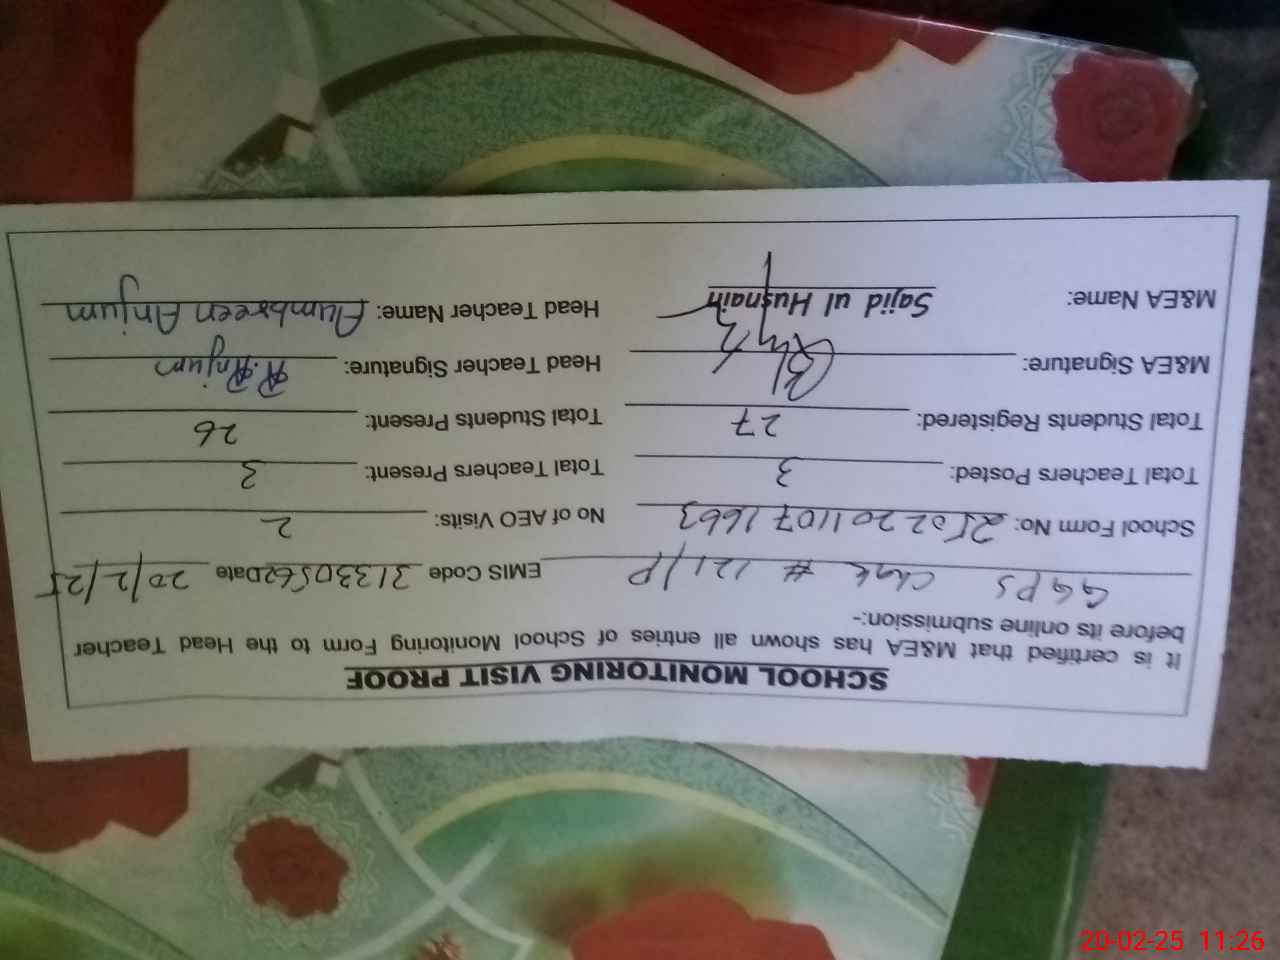 SCHOOL MONITORING VISIT PROOF
It is certified that M&EA has shown all entries of School Monitoring Form to the Head Teacher
before its online submission:-
GGPS Chak # 121/P EMIS Code 31330562 Date 20/2/25
School Form No: 2502201107 1663 No of AEO Visits: 2
Total Teachers Posted: 3 Total Teachers Present: 3
Total Students Registered: 27 Total Students Present: 26
M&EA Signature: Head Teacher Signature: A. Anjum
M&EA Name: Sajid ul Husnain Head Teacher Name: Aumbreen Anjum
20-02-25 11:26